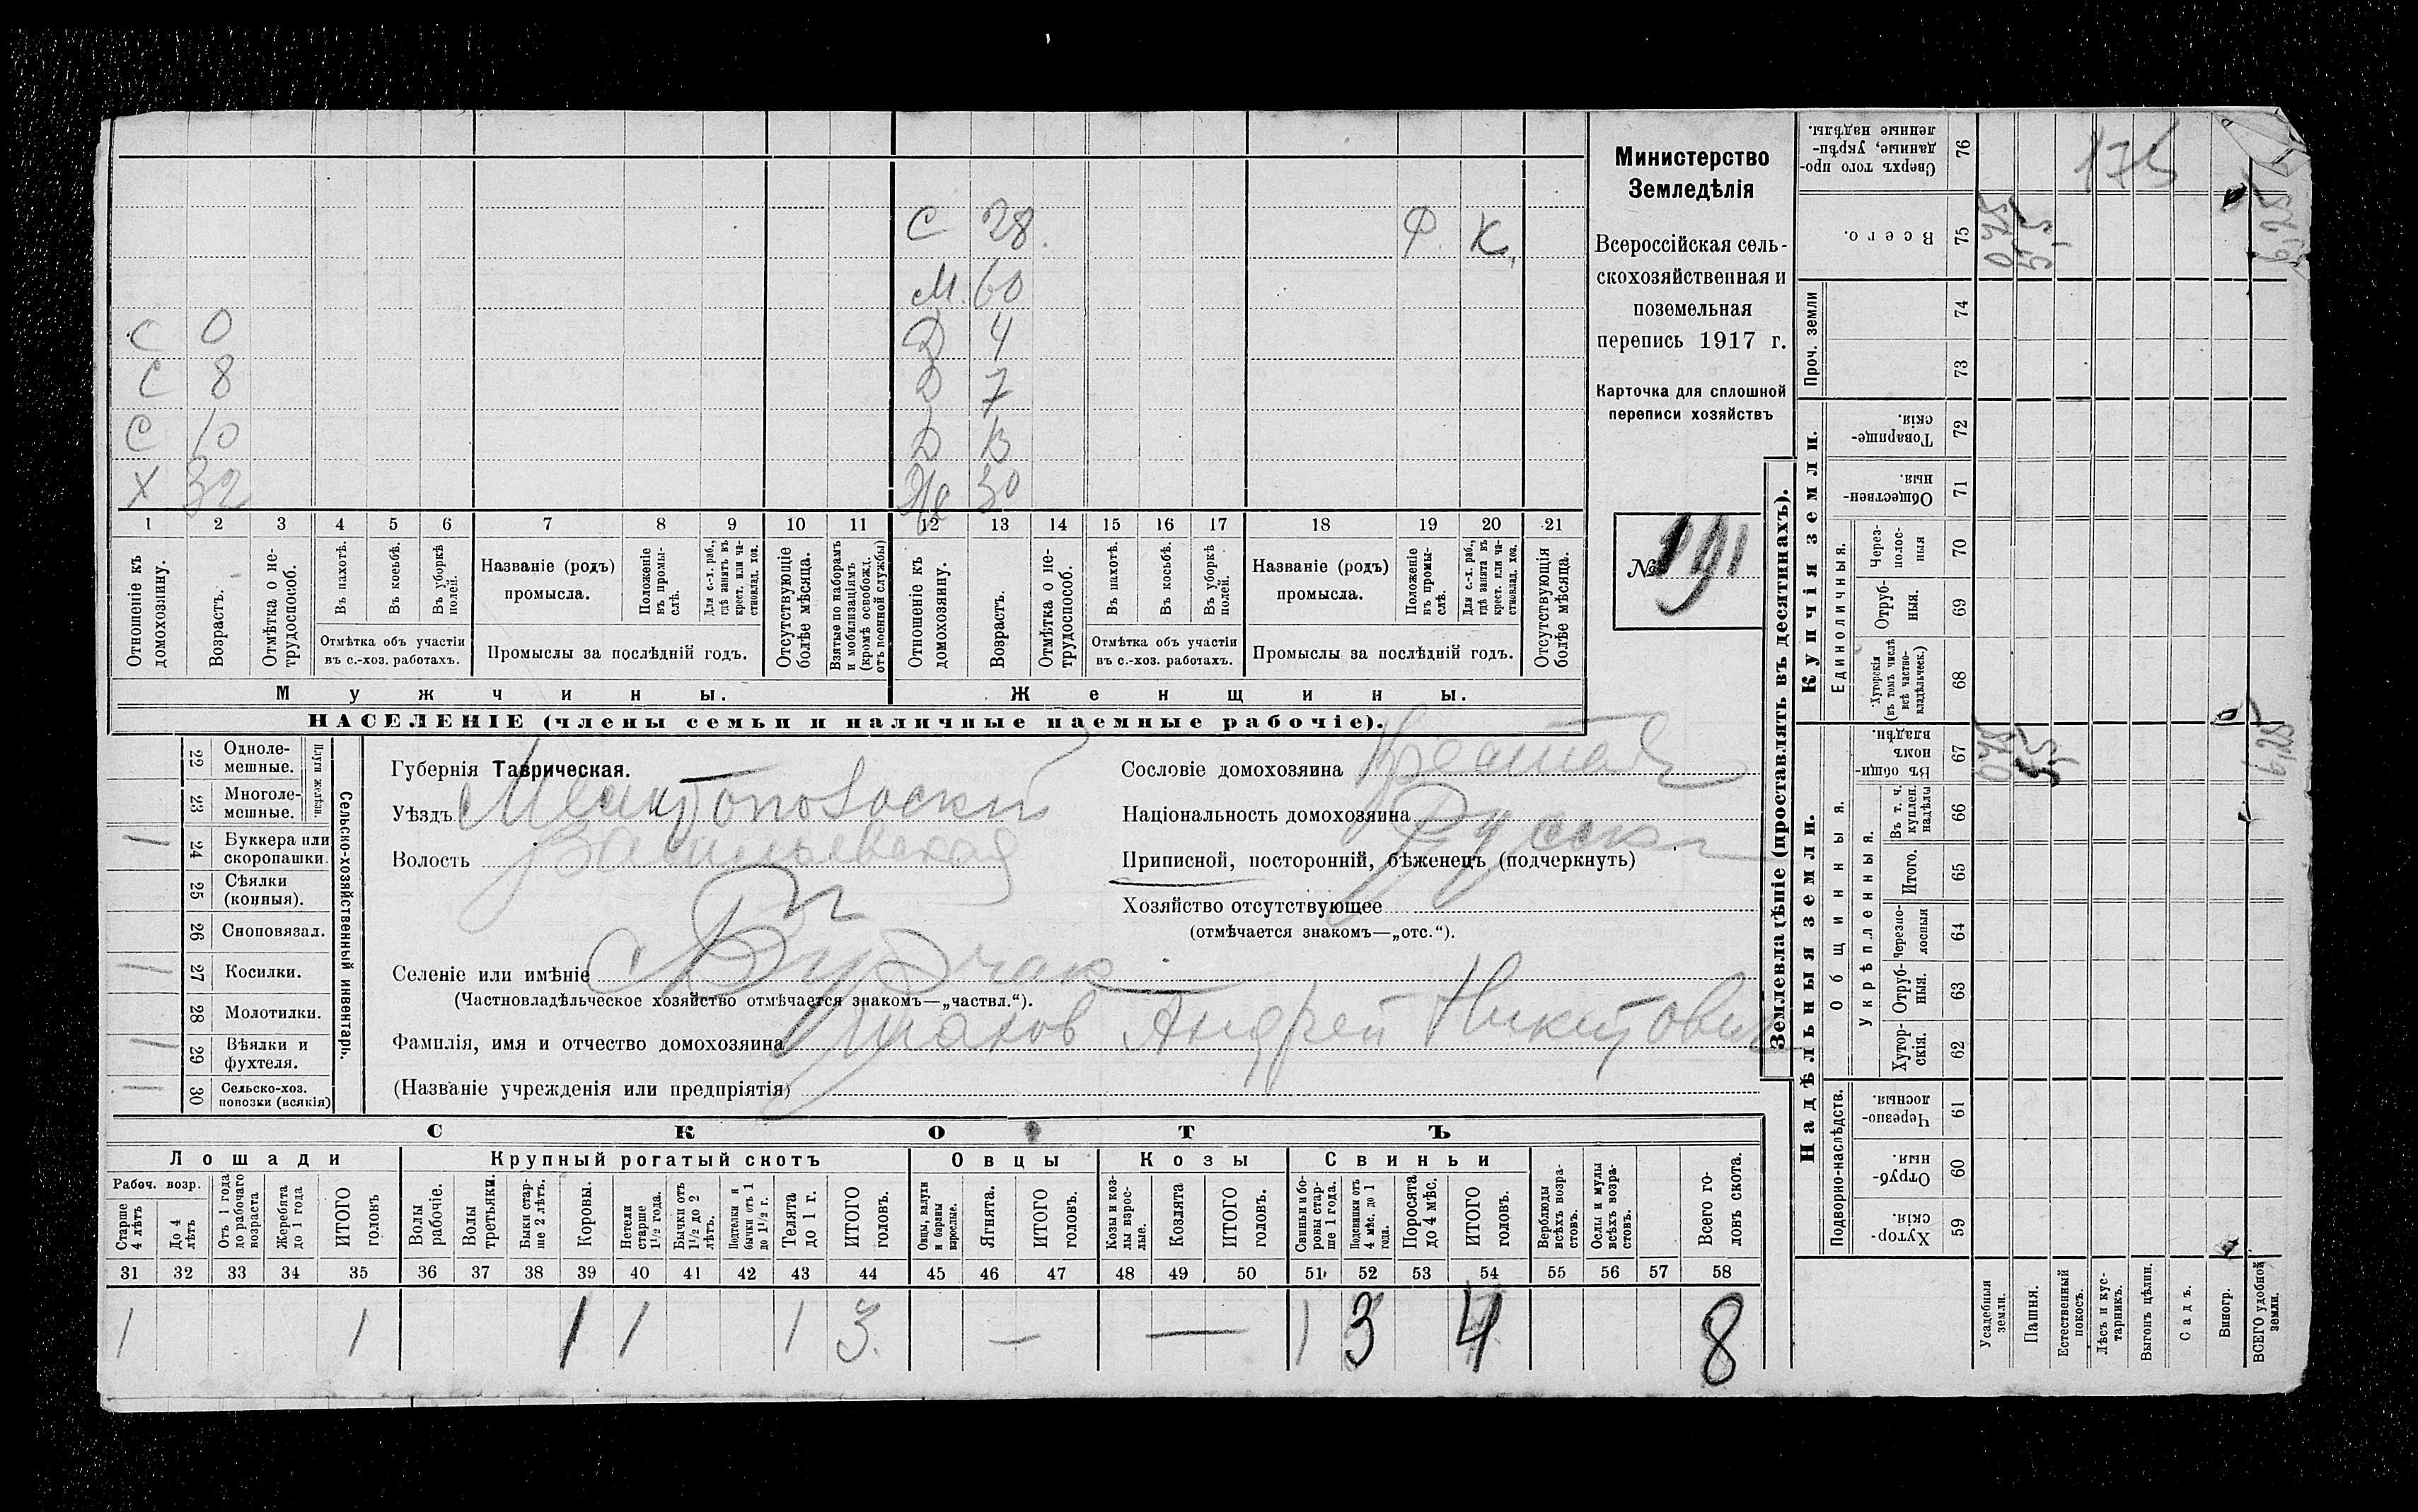 Министерство
Земледѣлія
Всероссійская сель-
скохозяйственная и
поземельная
перепись 1917 г.
Карточка для сплошной
переписи хозяйствъ
№ 191
С 28. Ф. К.
М. 60
С 0 Д 4
С 8 Д 7
С 10 Д
Х 32 Же 30
1 2 3 4 5 6 7 8 9 10 11 12 13 14 15 16 17 18 19 20 21
Отношеніе къ домохозяину.
Возрастъ.
Отмѣтка о не-трудоспособ.
Въ пахотѣ.
Въ косьбѣ.
Въ уборкѣ полей.
Отмѣтка объ участіи
въ с.-хоз. работахъ.
Названіе (родъ)
промысла.
Положеніе въ промы-слѣ.
Для с.-х. раб., гдѣ занятъ въ крест. или ча-стновлад. хоз.
Промыслы за послѣдній годъ.
Отсутствующіе болѣе мѣсяца.
Взятые по наборамъ и мобилизаціямъ (кромѣ освобожд. отъ военной службы)
Отношеніе къ домохозяину.
Возрастъ.
Отмѣтка о не-трудоспособ.
Въ пахотѣ.
Въ косьбѣ.
Въ уборкѣ полей.
Отмѣтка объ участіи
въ с.-хоз. работахъ.
Названіе (родъ)
промысла.
Положеніе въ промы-слѣ.
Для с.-х. раб., гдѣ занята въ крест. или ча-стновлад. хоз.
Промыслы за послѣдній годъ.
Отсутствующія болѣе мѣсяца.
Мужчины. Женщины.
НАСЕЛЕНІЕ (члены семьи и наличные наемные рабочіе).
Сельско-хозяйственный инвентарь.
Плуги желѣзн.
22 Одноле-мешные.
23 Многоле-мешные.
24 Буккера или скоропашки.
25 Сѣялки (конныя).
26 Сноповязал.
27 Косилки.
28 Молотилки.
29 Вѣялки и фухтеля.
30 Сельско-хоз. повозки (всякія)
Губернія Таврическая.
Уѣздъ Мелитопольскій
Волость Васильевская
Селеніе или имѣніе
(Частновладѣльческое хозяйство отмѣчается знакомъ—„частвл.“).
Фамилія, имя и отчество домохозяина Андрей Никитович
(Названіе учрежденія или предпріятія)
Сословіе домохозяина
Національность домохозяина
Приписной, посторонній, бѣженецъ (подчеркнуть)
Хозяйство отсутствующее
(отмѣчается знакомъ—„отс.“).
СКОТЪ
Лошади Крупный рогатый скотъ Овцы Козы Свиньи
Рабоч. возр.
Старше 4 лѣтъ
До 4 лѣтъ
Отъ 1 года до рабочаго возраста
Жеребята до 1 года
ИТОГО головъ
Волы рабочіе.
Волы третьяки.
Быки стар-ше 2 лѣтъ.
Коровы.
Нетели старше 1½ года.
Бычки отъ 1½ до 2 лѣтъ.
Подтелки и бычки отъ 1 до 1½ г.
Телята до 1 г.
ИТОГО головъ.
Овцы, валухи и бараны взрослые.
Ягнята.
ИТОГО головъ.
Козы и коз-лы взрос-лые.
Козлята
ИТОГО головъ.
Свиньи и бо-ровы стар-ше 1 года.
Подсвинки отъ 4 мѣс. до 1 года.
Поросята до 4 мѣс.
ИТОГО головъ.
Верблюды всѣхъ возра-стовъ.
Ослы и мулы всѣхъ возра-стовъ.
Всего го-ловъ скота.
31 32 33 34 35 36 37 38 39 40 41 42 43 44 45 46 47 48 49 50 51 52 53 54 55 56 57 58
1 1 1 1 1 3. — — 1 3 4 8
Землевладѣніе (проставлять въ десятинахъ).
Надѣльныя земли. Купчія земли. Проч. земли
Подворно-наслѣдств.
Общинныя.
Укрѣпленныя.
Единоличныя.
59 Хутор-скія.
60 Отруб-ныя.
61 Черезпо-лосныя.
62 Хутор-скія.
63 Отруб-ныя.
64 Черезпо-лосныя
65 Итого.
66 Въ т. ч. куплен. надѣлы
67 Въ общин-номъ владѣн.
68 Хуторскія (въ томъ числѣ всѣ частно-владѣльческ.)
69 Отруб-ныя.
70 Через-полос-ныя
71 Обществен-ныя.
72 Товарище-скія
73
74
75 Всего.
76 Сверхъ того про-данные, укрѣп-ленные надѣлы.
Усадебныя земли.
Пашня.
Естественный покосъ.
Лѣсъ и кус-тарникъ.
Выгонъ цѣлин.
Садъ.
Виногр.
ВСЕГО удобной земли.
0,75
5,5
6,25
0,75
5,5
6,25
175